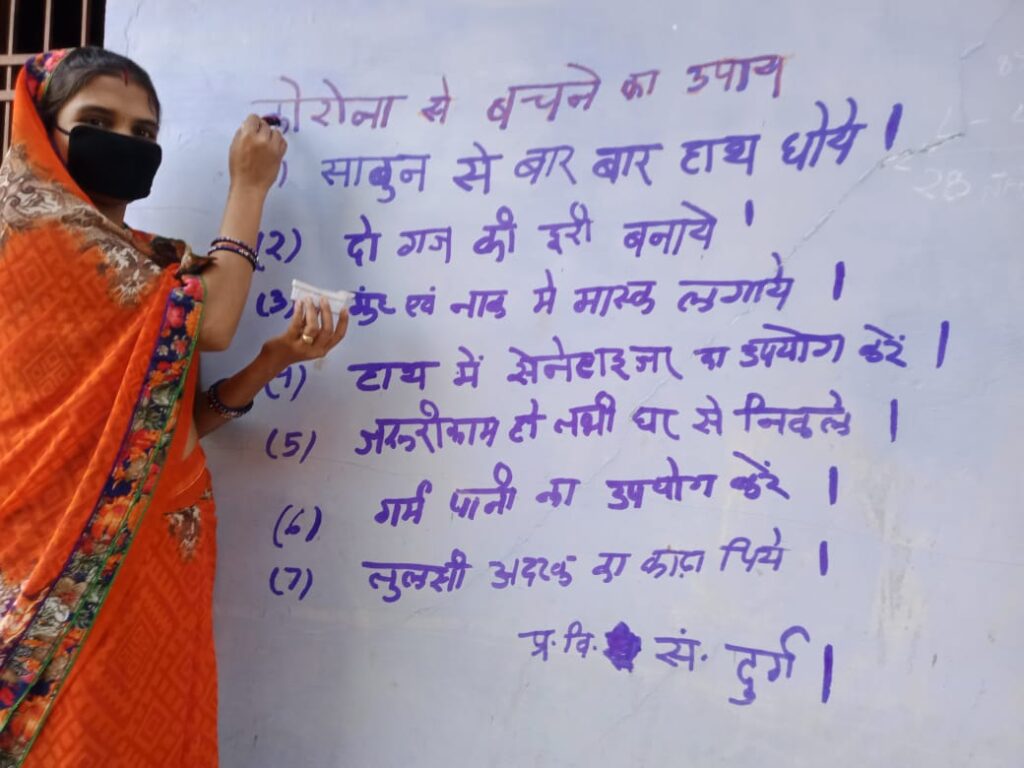 कोरोना से बचने का उपाय
) साबुन से बार बार हाथ धोये |
(२) दो गज की दूरी बनाये |
(3) मुंह एवं नाक मे मास्क लगाये |
(4) हाथ में सेनेटाइजर का उपयोग करें |
(5) जरूरी काम हो तभी घर से निकले |
(6) गर्म पानी का उपयोग करें |
(7) तुलसी अदरक का काढ़ा पिये |
प्र. वि. सं. दुर्ग |